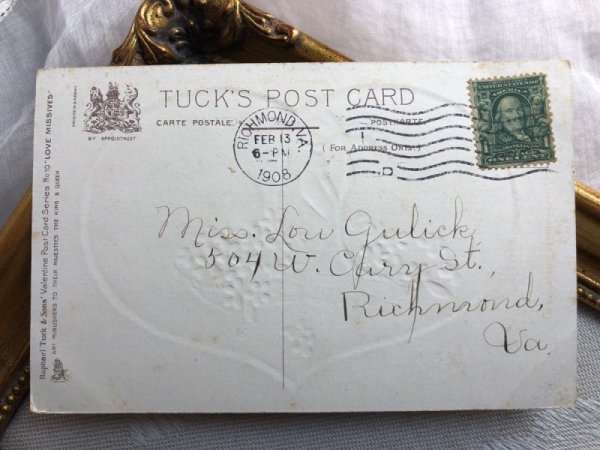 TUCK'S POST CARD
CARTE POSTALE
POSTKARTE
(FOR ADDRESS ONLY.)
BY APPOINTMENT
RICHMOND, VA.
FEB 13
6-PM
1908
Miss. Lou Gulick,
504 W. Cary St.,
Richmond,
Va.
Raphael Tuck & Sons' Valentine Post Card Series No 10 "LOVE MISSIVES"
ART PUBLISHERS TO THEIR MAJESTIES THE KING & QUEEN